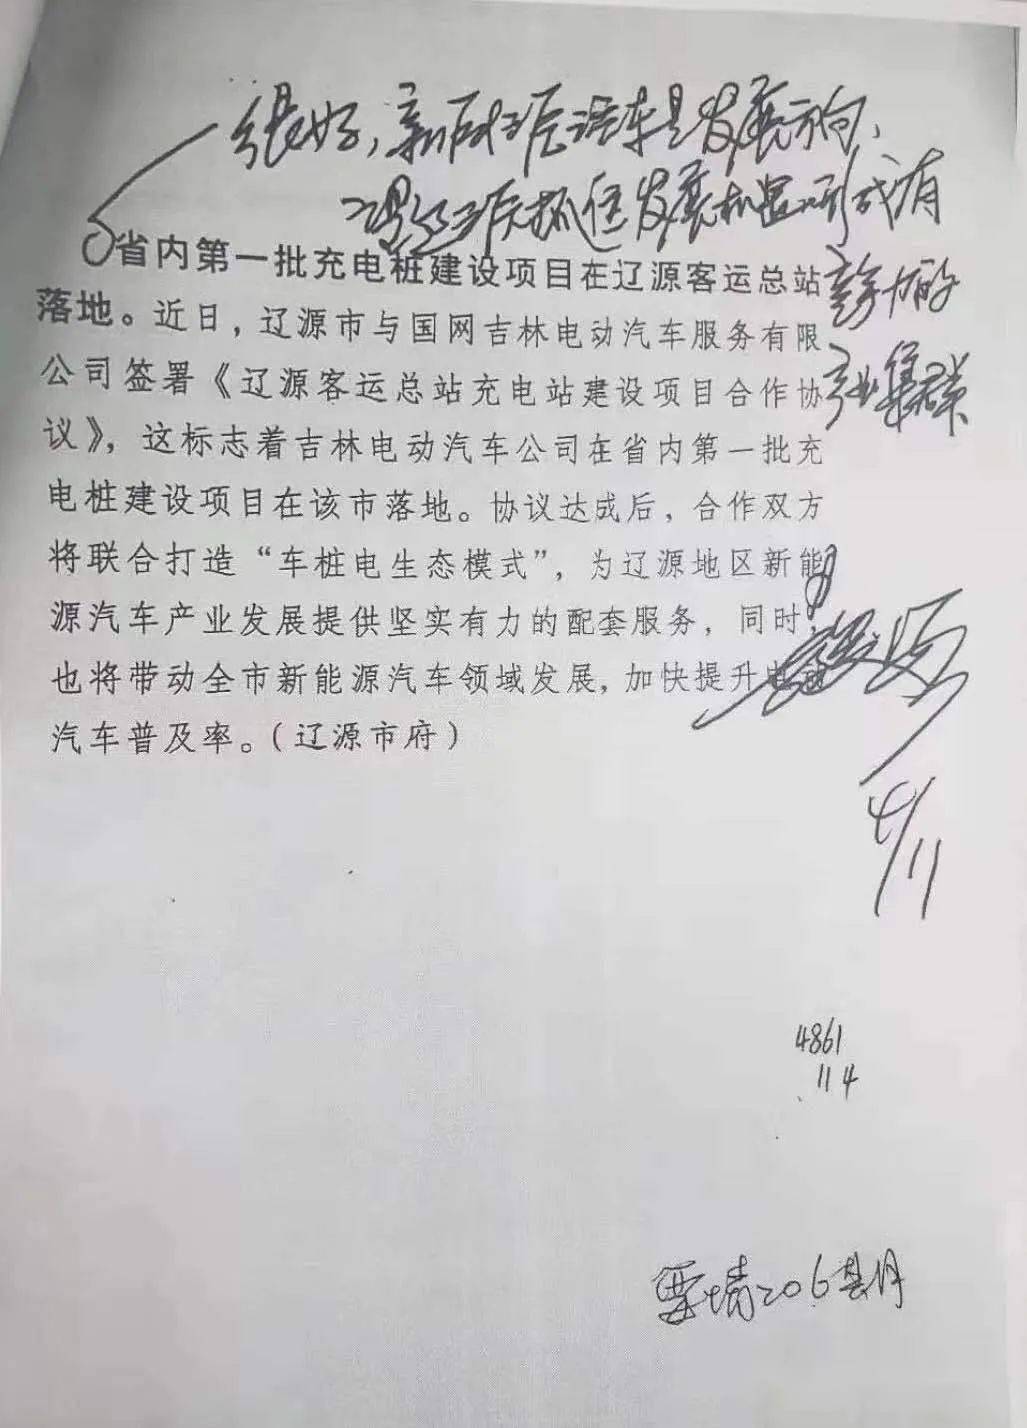 很好，新能源汽车是发展方向，
辽源抓住发展机遇，形成有
竞争力的
产业集群
省内第一批充电桩建设项目在辽源客运总站
落地。近日，辽源市与国网吉林电动汽车服务有限
公司签署《辽源客运总站充电站建设项目合作协
议》，这标志着吉林电动汽车公司在省内第一批充
电桩建设项目在该市落地。协议达成后，合作双方
将联合打造“车桩电生态模式”，为辽源地区新能
源汽车产业发展提供坚实有力的配套服务，同时，
也将带动全市新能源汽车领域发展，加快提升
汽车普及率。（辽源市府）
4/11
4861
11 4